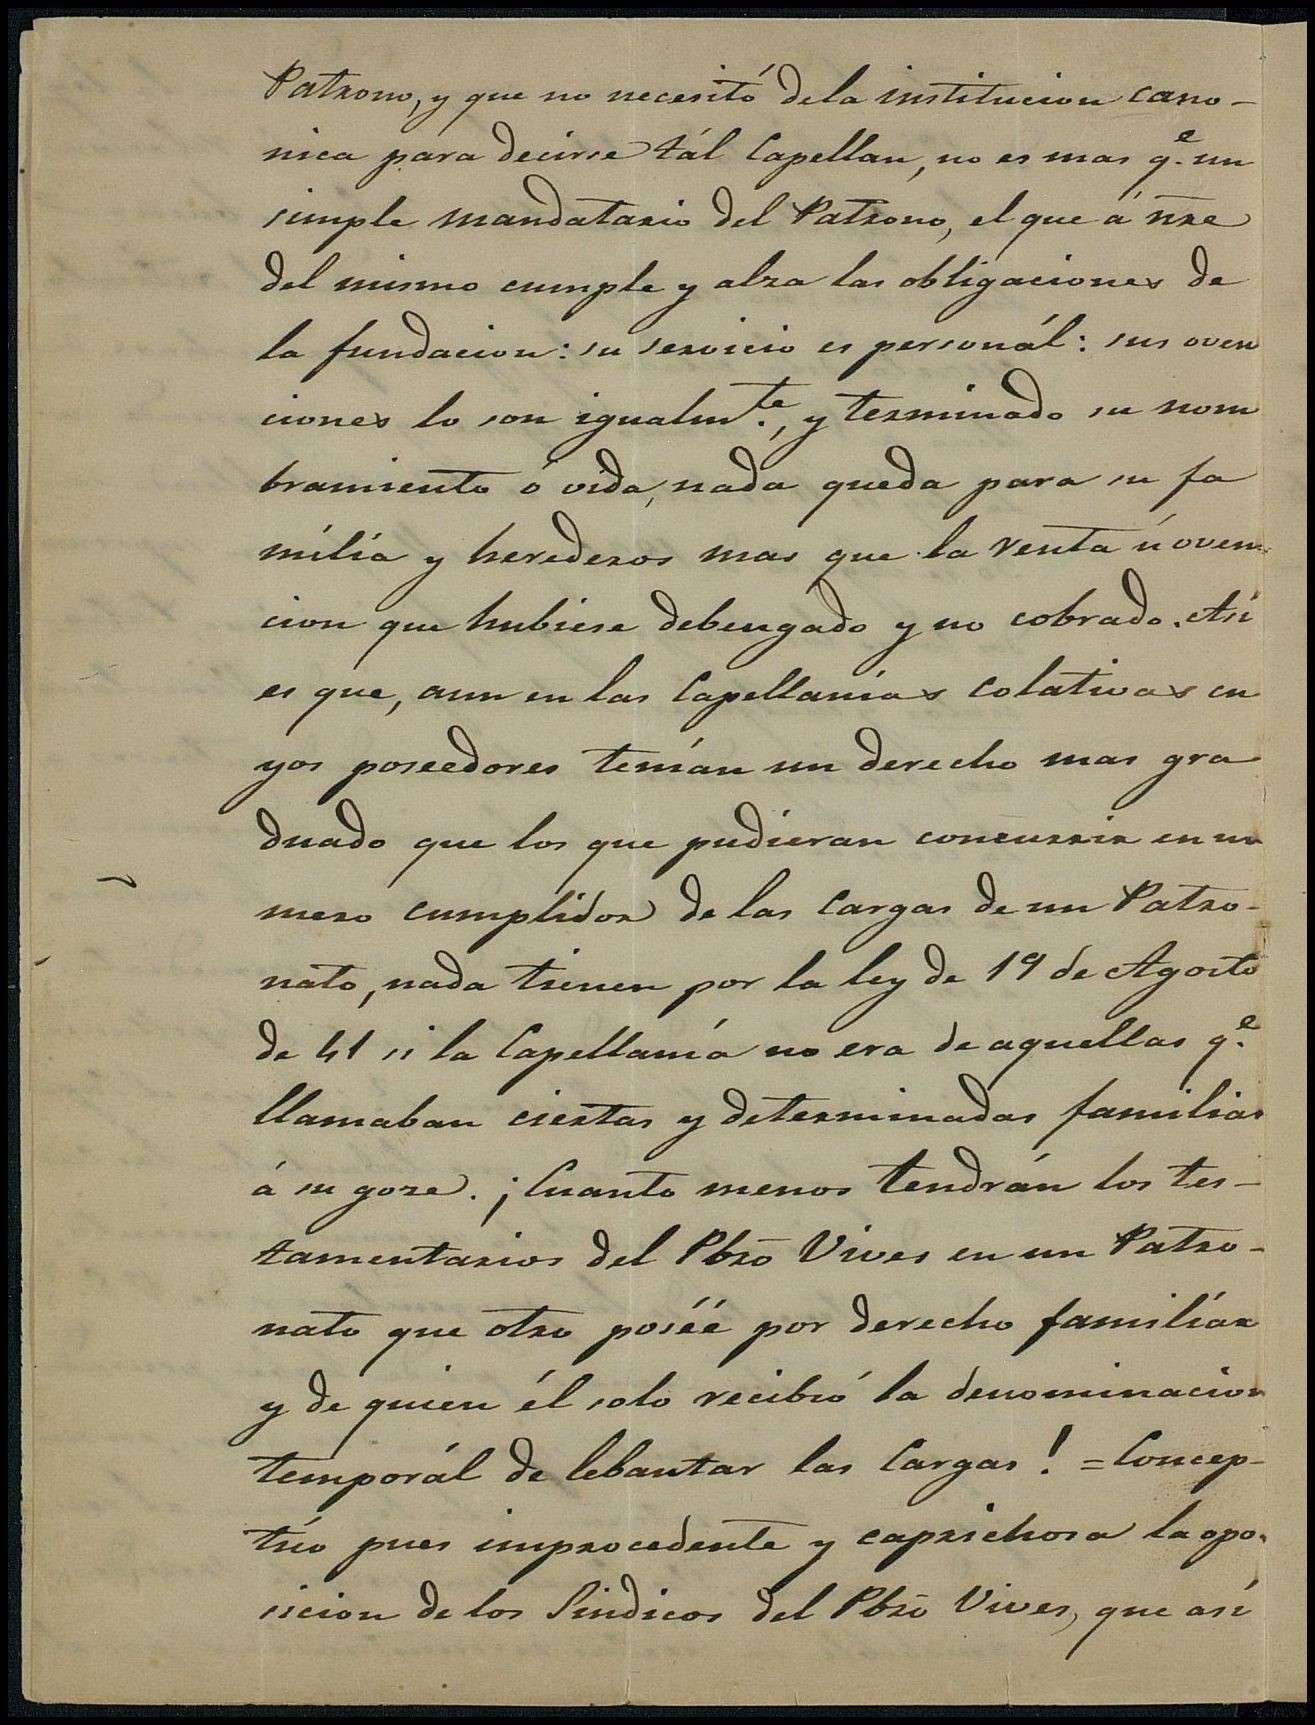 Patrono, y que no necesitó dela institucion cano-
nica para decirse tál Capellan, no es mas q.e un
simple mandatario del Patrono, el que á nr̃e
del mismo cumple y alza las obligaciones de
la fundacion: su servicio es personál: sus oven
ciones lo son igualm.te, y terminado su nom
bramiento ó vida, nada queda para su fa
milia y herederos mas que la renta ú oven
cion que hubiese debengado y no cobrado. Asi
es que, aun en las Capellanías colativas cu
yos poseedores tenían un derecho mas gra
duado que los que pudieran concurrir en un
mero cumplidor de las cargas de un Patro-
nato, nada tienen por la ley de 19 de Agosto
de 41 si la Capellanía no era de aquellas q.e
llamaban ciertas y determinadas familias
á su goze. ¡Cuanto menos tendrán los tes-
tamentarios del Pbr̃o Vives en un Patro-
nato que otro poséé por derecho familiar
y de quien él solo recibió la denominacion
temporál de lebantar las Cargas! = Concep-
túo pues improcedente y caprichosa la opo-
sicion de los Sindicos del Pbr̃o Vives, que asi